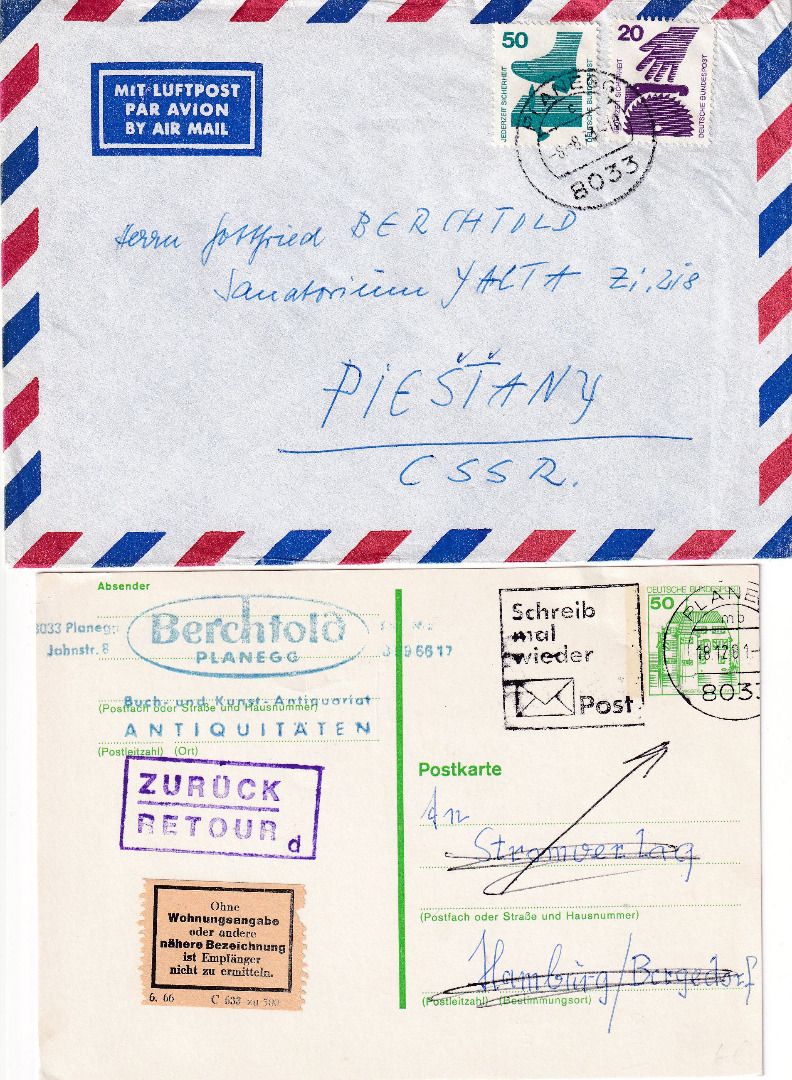 50
20
JEDERZEIT SICHERHEIT
DEUTSCHE BUNDESPOST
DEUTSCHE BUNDESPOST
MIT LUFTPOST
PAR AVION
BY AIR MAIL
PLANEGG
8033
Herrn Gottfried BERCHTOLD
Sanatorium YALTA Zi. 218
PIEŠŤANY
CSSR.
Absender
8033 Planegg
Jahnstr. 8
Berchtold
PLANEGG
859 66 17
Buch- und Kunst-Antiquariat
(Postfach oder Straße und Hausnummer)
ANTIQUITÄTEN
(Postleitzahl) (Ort)
ZURÜCK
RETOUR d
Ohne
Wohnungsangabe
oder andere
nähere Bezeichnung
ist Empfänger
nicht zu ermitteln.
6. 66 C 633 zu 500
Schreib
mal
wieder
Post
DEUTSCHE BUNDESPOST
50
PLANE
mb
18.12.81-
8033
Postkarte
An
Stromverlag
(Postfach oder Straße und Hausnummer)
Hamburg/Bergedorf
(Postleitzahl) (Bestimmungsort)